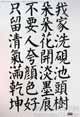 我家洗硯池頭樹
朵朵花開淡墨痕
不要人夸顏色好
只留清氣滿乾坤